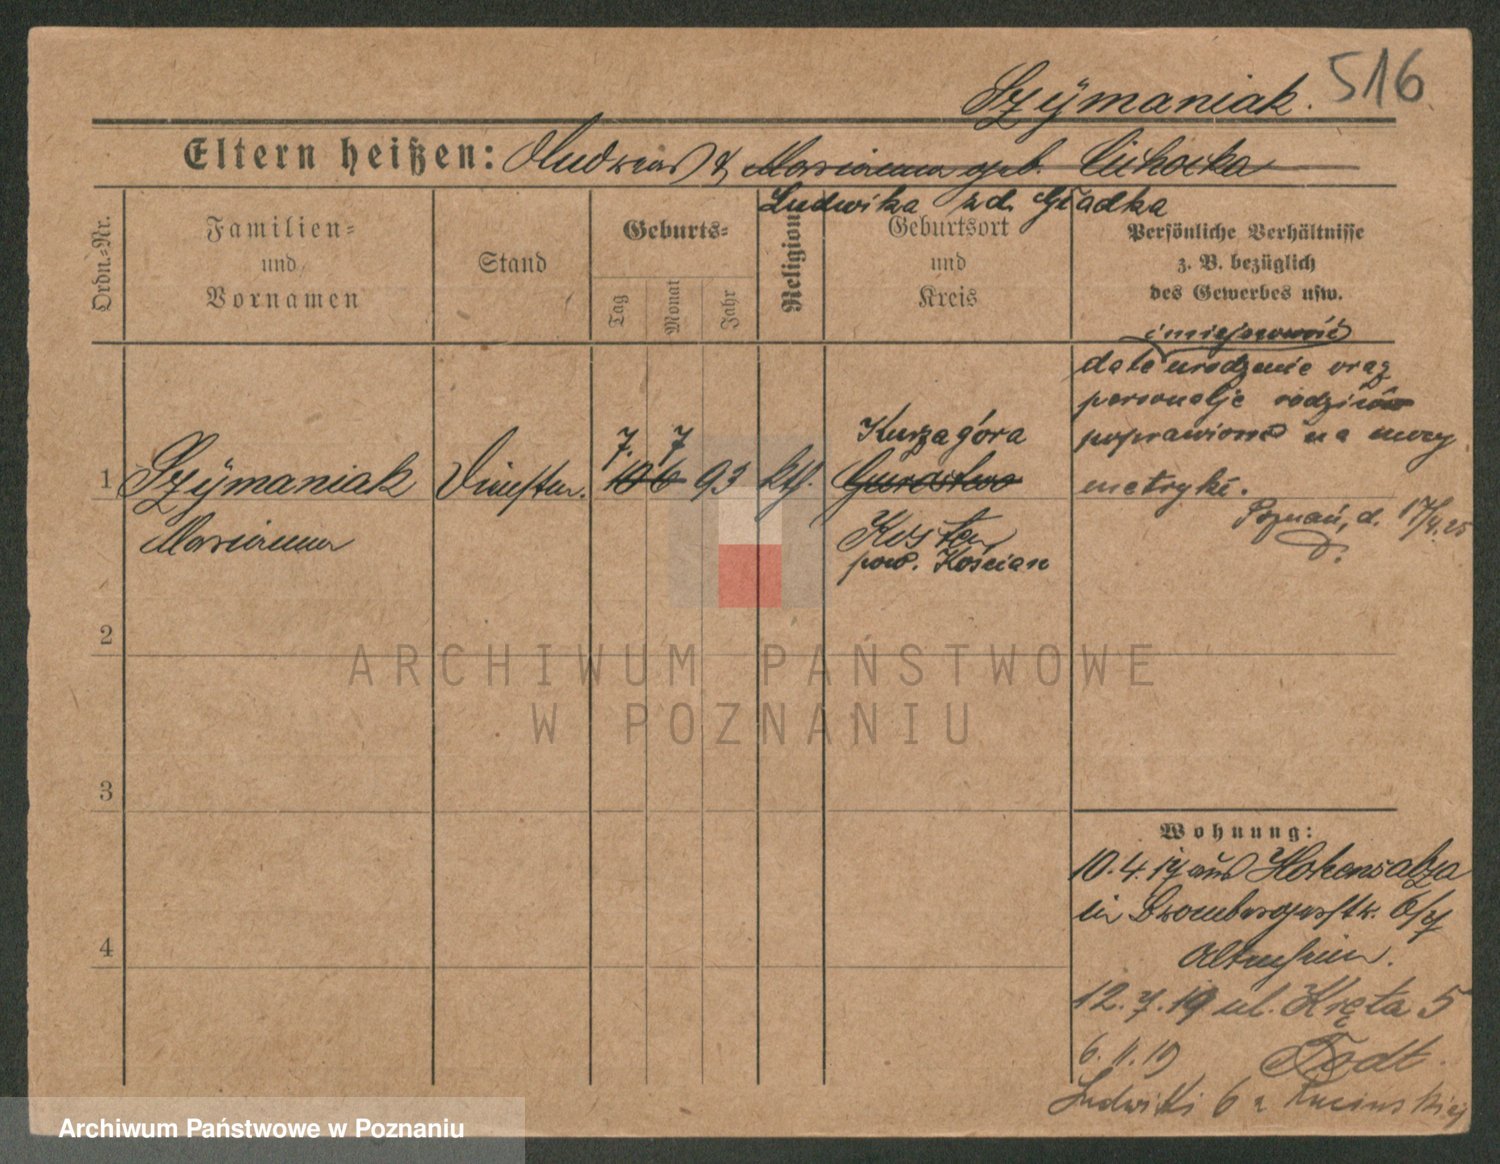 Szymaniak. 516
Eltern heißen: Andreas & Marianna geb. Cichocka
Ludwika z d. Gładka
Ordn.-Nr.
Familien-
und
Vornamen
Stand
Geburts-
Tag
Monat
Jahr
Religion
Geburtsort
und
Kreis
Persönliche Verhältnisse
z. B. bezüglich
des Gewerbes usw.
i miejscowość
date urodzenie oraz
personalje rodziców
poprawiono na mocy
metryki.
Poznań, d. 17/4.25
1 Szymaniak
Marianna
7. 7
10 6 93 kth.
Kurzagóra
Kosten
pow. Kościan
2
3
4
Wohnung:
10.4.17 aus Hohensalza
in Brombergerstr.
Altersheim.
12.7.19 ul. Kręta 5
6.11.19
Ludwiki 6
ARCHIWUM PAŃSTWOWE
W POZNANIU
Archiwum Państwowe w Poznaniu